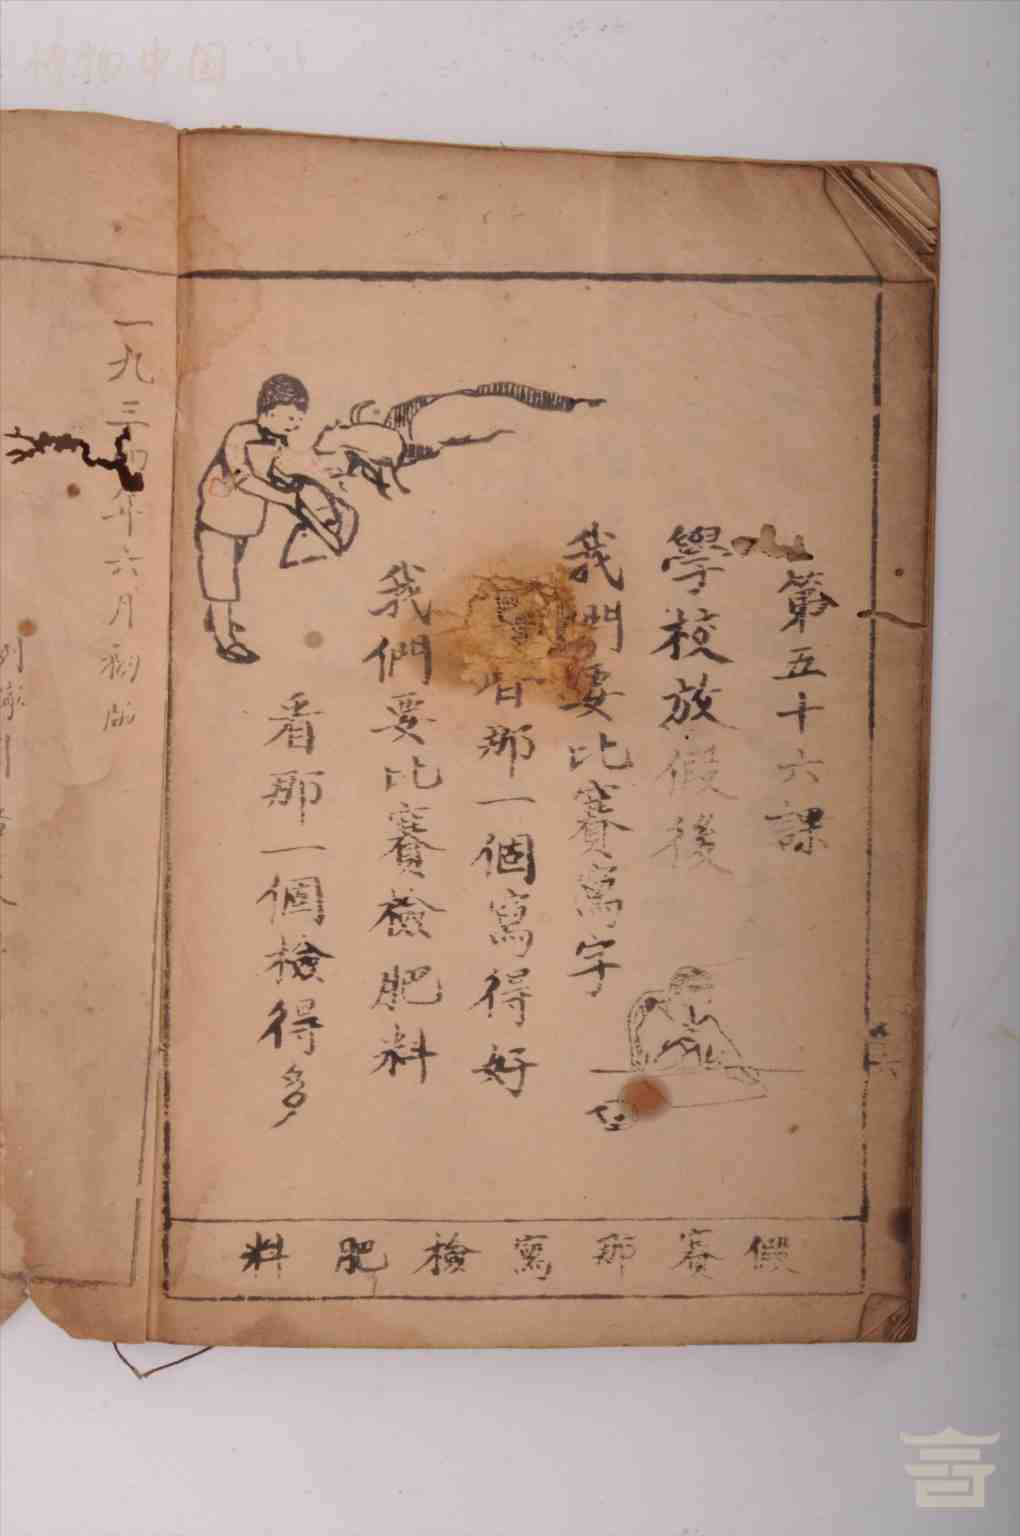 第五十六課
學校放假後
我們要比賽寫字
看那一個寫得好
我們要比賽檢肥料
看那一個檢得多
假賽那寫檢肥料
一九三四年六月翻版
博物中国